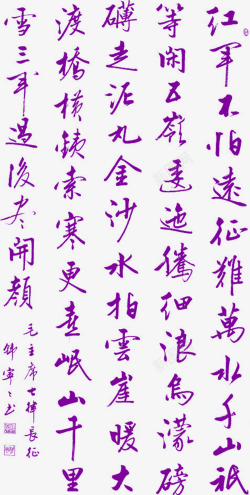 红軍不怕遠征難萬水千山祇
等閑五嶺逶迤騰細浪烏濛磅
礴走泥丸金沙水拍雲崖暖大
渡橋橫銕索寒更喜岷山千里
雪三軍過後尽開顏
毛主席七律長征